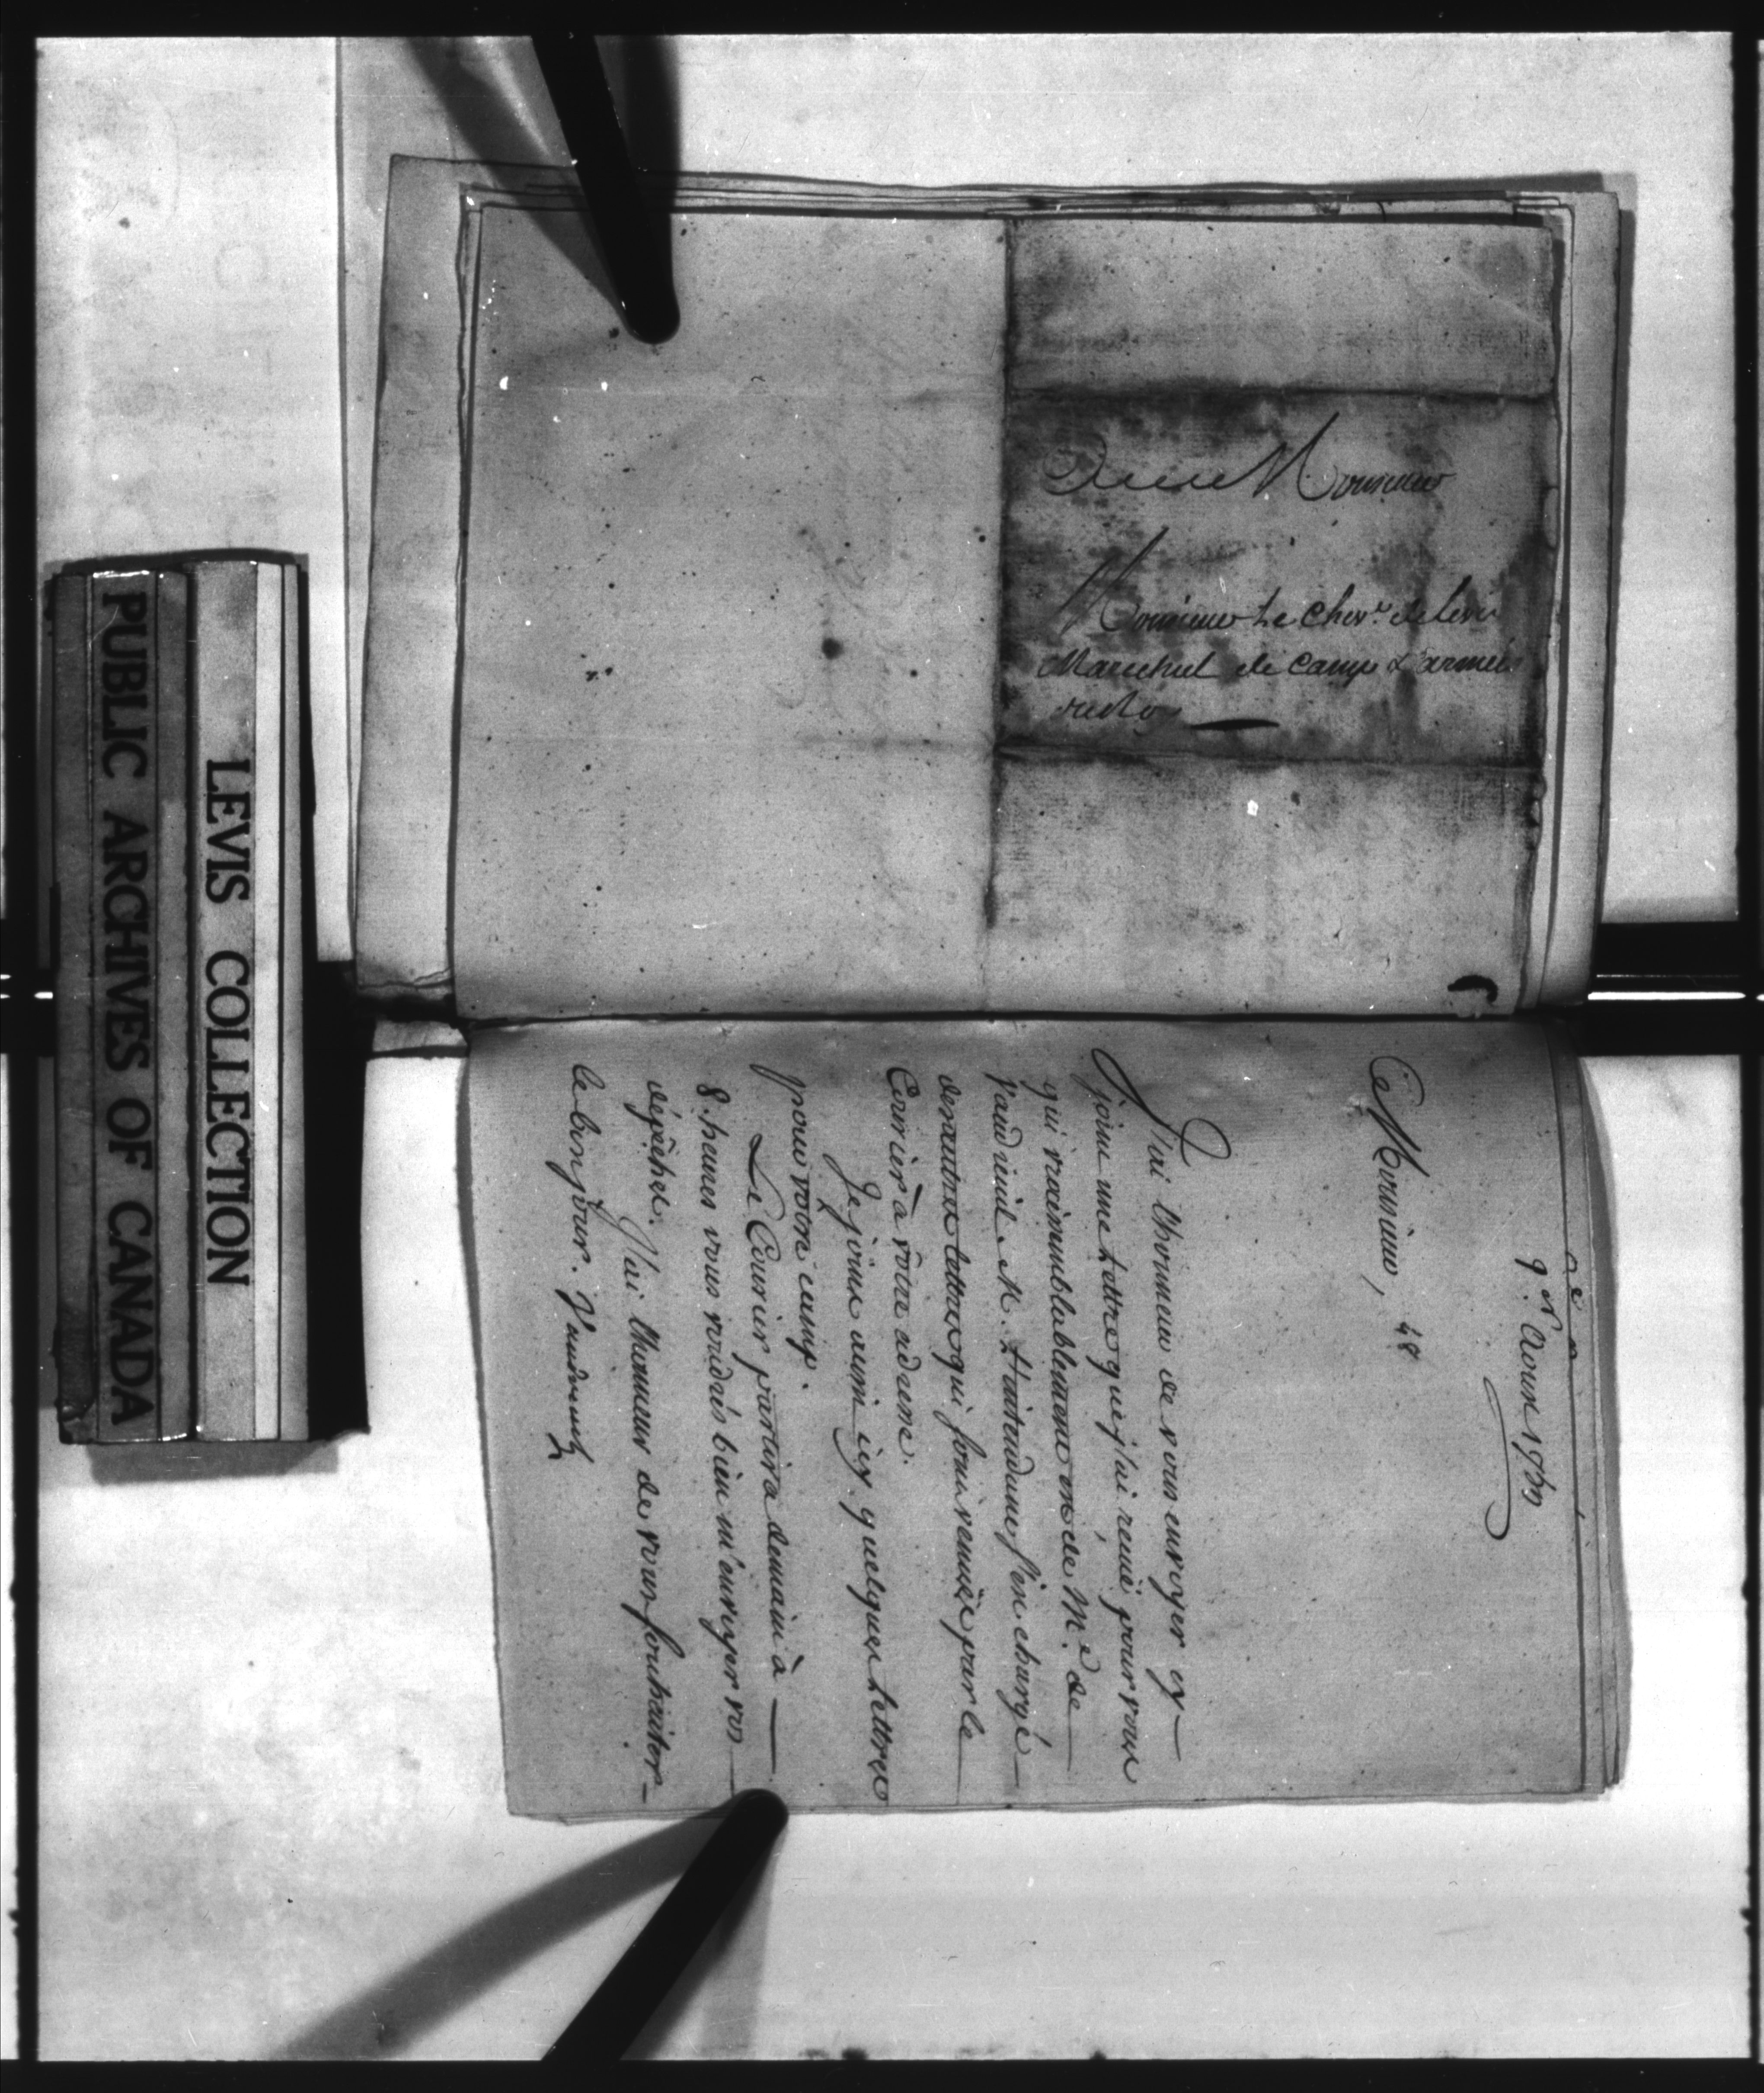 A Monsieur
Monsieur Le Chev.r de Levis
Marechal de Camp & armées
du Roy
9.e Aoust 1759
Ce Monsieur, 48
J'ai L'honneur de vous envoyer cy
joint une Lettre que j'ai reçuë pour vous
qui vraisemblablement est de M.e de
Vaudreuil. M. s'en chargé
des autres lettres qui sont venuës par le
Courier à vôtre adresse.
Je joins aussi icy quelques Lettres
pour votre camp.
Le Courier partira demain à
8. heures vous voudrés bien m'envoyer vos
dépêches. J'ai L'honneur de vous souhaiter
le bonjour. Vaudreuil
LEVIS COLLECTION
PUBLIC ARCHIVES OF CANADA